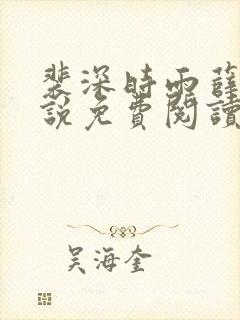 裴深時雨薛
說免費閱讀
吴海奎